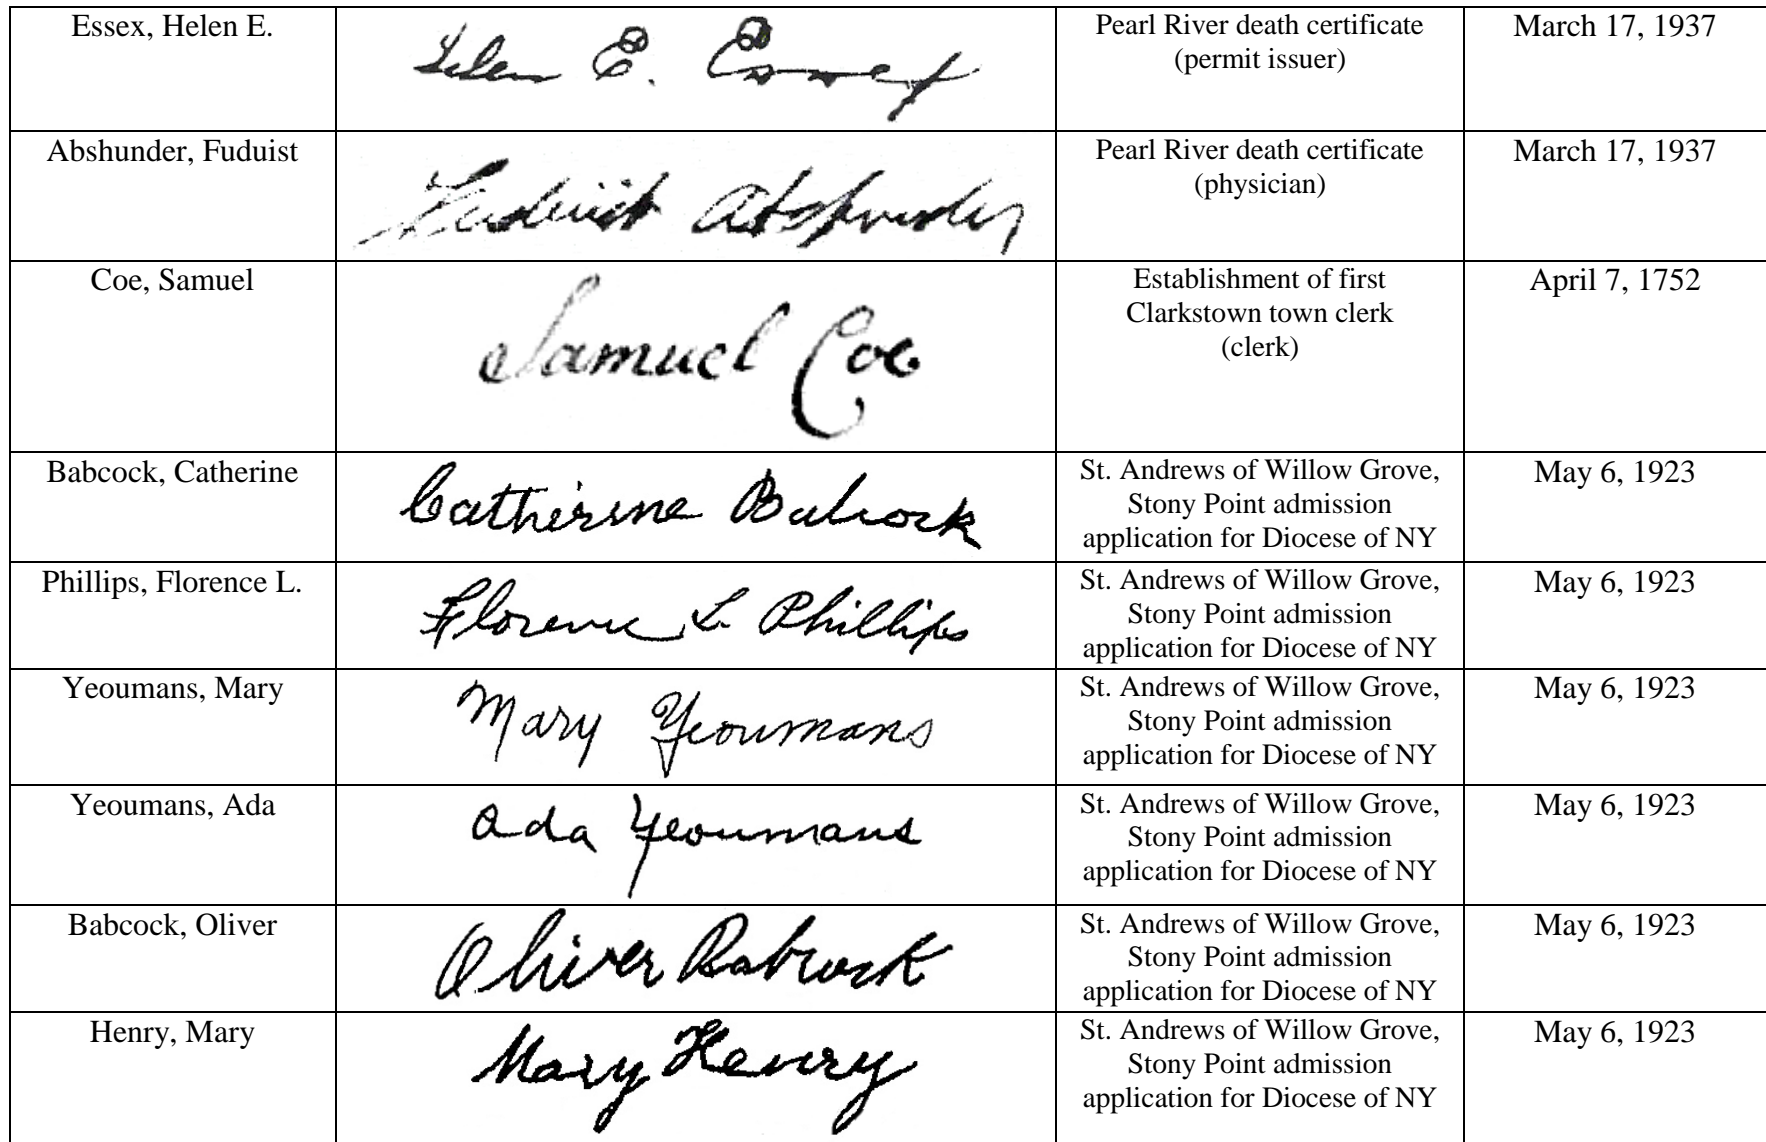 Essex, Helen E.
Helen E. Essex
Pearl River death certificate
(permit issuer)
March 17, 1937
Abshunder, Fuduist
Pearl River death certificate
(physician)
March 17, 1937
Coe, Samuel
Samuel Coe
Establishment of first
Clarkstown town clerk
(clerk)
April 7, 1752
Babcock, Catherine
Catherine Babcock
St. Andrews of Willow Grove,
Stony Point admission
application for Diocese of NY
May 6, 1923
Phillips, Florence L.
Florence L. Phillips
St. Andrews of Willow Grove,
Stony Point admission
application for Diocese of NY
May 6, 1923
Yeoumans, Mary
Mary Yeoumans
St. Andrews of Willow Grove,
Stony Point admission
application for Diocese of NY
May 6, 1923
Yeoumans, Ada
Ada Yeoumans
St. Andrews of Willow Grove,
Stony Point admission
application for Diocese of NY
May 6, 1923
Babcock, Oliver
Oliver Babcock
St. Andrews of Willow Grove,
Stony Point admission
application for Diocese of NY
May 6, 1923
Henry, Mary
Mary Henry
St. Andrews of Willow Grove,
Stony Point admission
application for Diocese of NY
May 6, 1923